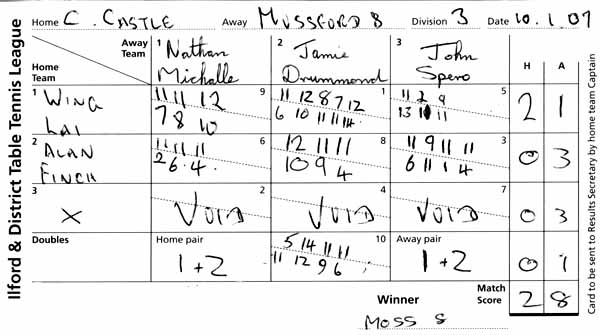 Ilford & District Table Tennis League
Home C. CASTLE Away MOSSFORD 8 Division 3 Date 10.1.07
Home Team Away Team 1 Nathan Michalle 2 Jamie Drummond 3 John Spero H A
1 WING LAI 9 1 5 2 1
11 11 12 11 12 8 7 12 11 2 9
7 8 10 6 10 11 11 14 13 11 11
2 ALAN FINCH 6 8 3 0 3
11 11 11 12 11 11 11 9 11 11
2 6 4 10 9 4 6 11 1 4
3 X 2 VOID 4 VOID 7 VOID 0 3
Doubles Home pair 1+2 10 Away pair 1+2 0 1
5 14 11 11
11 12 9 6
Winner Match Score 2 8
MOSS 8
Card to be sent to Results Secretary by home team Captain